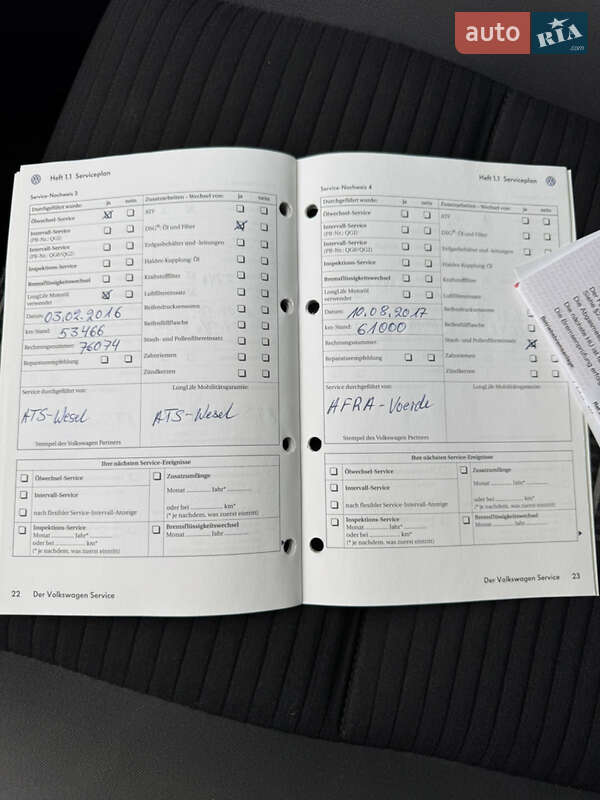 auto RIA .com
Heft 1.1 Serviceplan
Service-Nachweis 3
Durchgeführt wurde: ja nein Zusatzarbeiten - Wechsel von: ja nein
Ölwechsel-Service ATF
Intervall-Service DSG®-Öl und Filter
(PR-Nr.: QG1)
Intervall-Service Erdgasbehälter und -leitungen
(PR-Nr.: QG0/QG2)
Inspektions-Service Haldex-Kupplung: Öl
Bremsflüssigkeitswechsel Kraftstofffilter
LongLife Motoröl Luftfiltereinsatz
verwendet
Datum: 03.02.2016 Reifendrucksensoren
km-Stand: 53466 Reifenfüllflasche
Rechnungsnummer: 76074 Staub- und Pollenfiltereinsatz
Reparaturempfehlung Zahnriemen
Zündkerzen
Service durchgeführt von: LongLife Mobilitätsgarantie:
ATS-Wesel ATS-Wesel
Stempel des Volkswagen Partners
Ihre nächsten Service-Ereignisse
Ölwechsel-Service Zusatzumfänge
Monat ........... Jahr* ...........
Intervall-Service
oder bei ........... km*
nach flexibler Service-Intervall-Anzeige (* je nachdem, was zuerst eintritt)
Inspektions-Service Bremsflüssigkeitswechsel
Monat ........... Jahr* ........... Monat ........... Jahr ...........
oder bei ........... km*
(* je nachdem, was zuerst eintritt)
22 Der Volkswagen Service
Heft 1.1 Serviceplan
Service-Nachweis 4
Durchgeführt wurde: ja nein Zusatzarbeiten - Wechsel von: ja nein
Ölwechsel-Service ATF
Intervall-Service DSG®-Öl und Filter
(PR-Nr.: QG1)
Intervall-Service Erdgasbehälter und -leitungen
(PR-Nr.: QG0/QG2)
Inspektions-Service Haldex-Kupplung: Öl
Bremsflüssigkeitswechsel Kraftstofffilter
LongLife Motoröl Luftfiltereinsatz
verwendet
Datum: 10.08.2017 Reifendrucksensoren
km-Stand: 61000 Reifenfüllflasche
Rechnungsnummer: Staub- und Pollenfiltereinsatz
Reparaturempfehlung Zahnriemen
Zündkerzen
Service durchgeführt von: LongLife Mobilitätsgarantie:
AFRA-Voerde
Stempel des Volkswagen Partners
Ihre nächsten Service-Ereignisse
Ölwechsel-Service Zusatzumfänge
Monat ........... Jahr* ...........
Intervall-Service
oder bei ........... km*
nach flexibler Service-Intervall-Anzeige (* je nachdem, was zuerst eintritt)
Inspektions-Service Bremsflüssigkeitswechsel
Monat ........... Jahr* ........... Monat ........... Jahr ...........
oder bei ........... km*
(* je nachdem, was zuerst eintritt)
Der Volkswagen Service 23